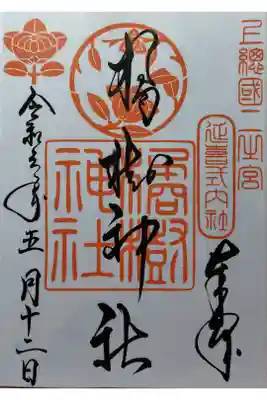 上總國二之宮
延喜式内社
奉拝
橘樹神社
橘樹
神社
令和六年五月十二日